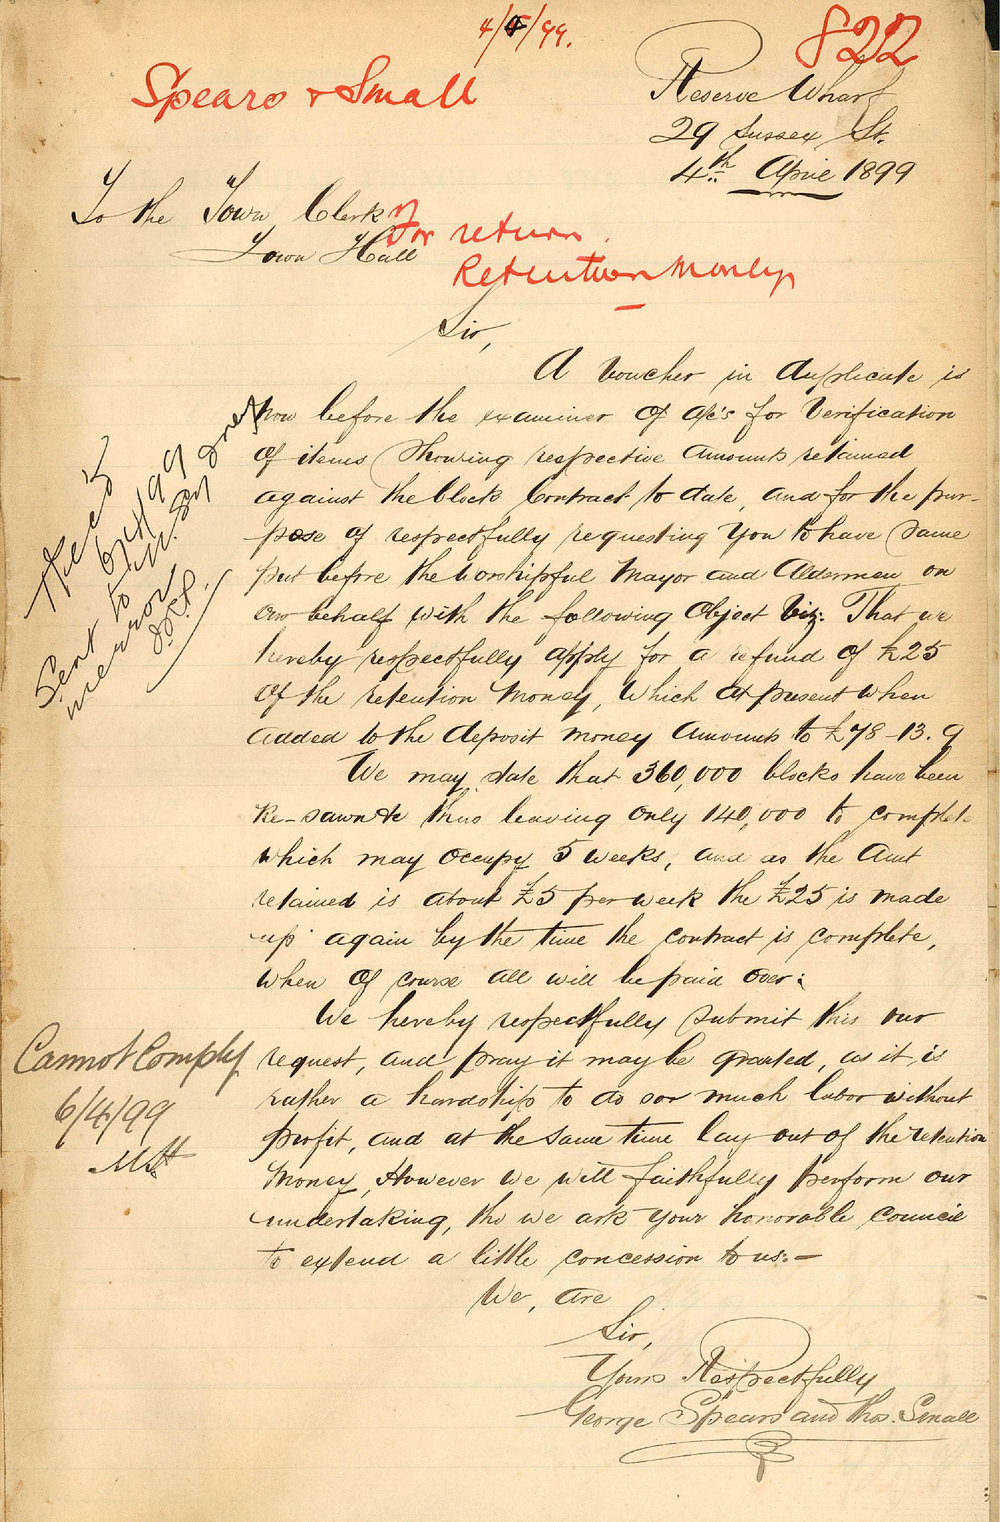 4/4/99.
822
Spears & Small
Reserve Wharf
29 Sussex St.
4th April 1899
To the Town Clerk
Town Hall
For return
Retention Money
Sir,
A Voucher in duplicate is
now before the examiner of a/c's for Verification
of items showing respective amounts retained
against the block Contract to date, and for the pur-
pose of respectfully requesting you to have same
put before the Worshipful Mayor and Aldermen on
our behalf with the following object viz: That we
hereby respectfully apply for a refund of £25
of the retention money, which at present when
added to the deposit money amounts to £78-13.9
We may state that 360,000 blocks have been
Re-sawn &c thus leaving only 140,000 to complete
which may occupy 5 weeks, and as the amt
retained is about £5 per week the £25 is made
up again by the time the contract is complete,
when of course all will be paid over:
We hereby respectfully submit this our
request, and pray it may be granted, as it is
rather a hardship to do sor much labor without
profit, and at the same time lay out of the retention
money, However we will faithfully perform our
undertaking, tho we ask your honorable council
to extend a little concession to us:—
We, are
Sir,
Yours Respectfully
George Spears and Thos. Small
6/4/99
Sent to
Cannot Comply
6/4/99